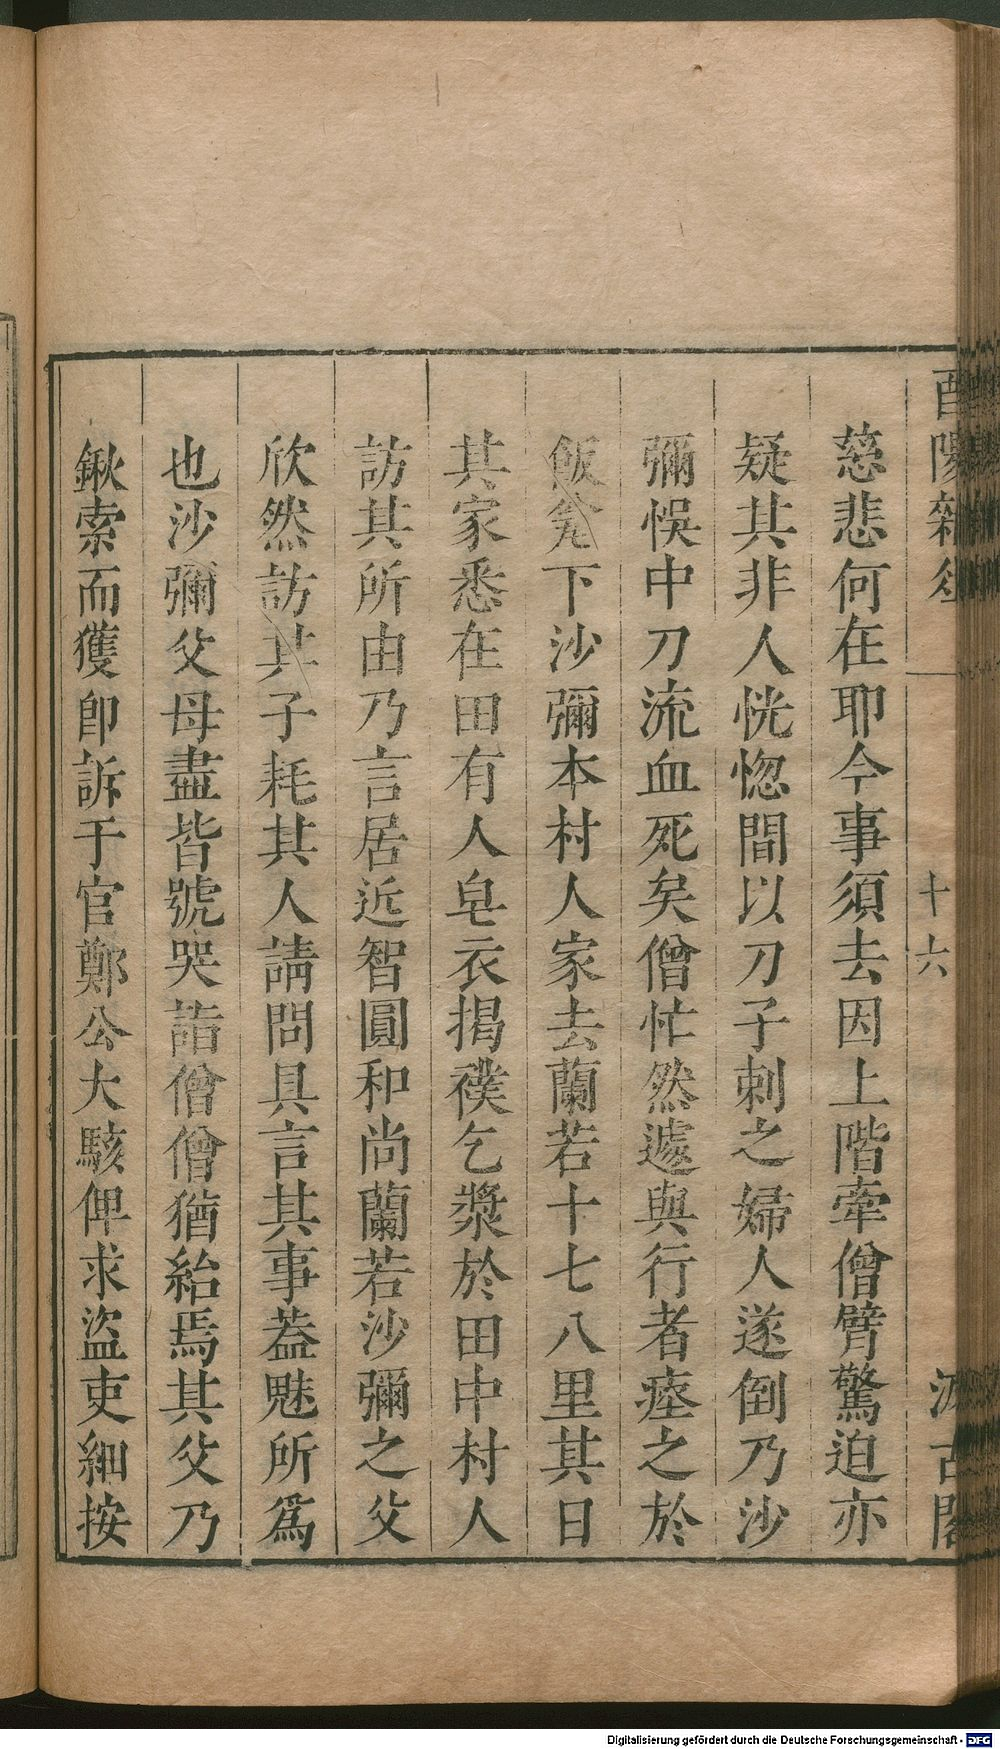 酉陽雜俎
十六
汲古閣
慈悲何在耶今事須去因上階牽僧臂驚迫亦
疑其非人恍惚間以刀子刺之婦人遂倒乃沙
彌悞中刀流血死矣僧忙然遽與行者瘞之於
飯瓮下沙彌本村人家去蘭若十七八里其日
其家悉在田有人皂衣揭襆乞漿於田中村人
訪其所由乃言居近智圓和尚蘭若沙彌之父
欣然訪其子耗其人請問具言其事葢魅所爲
也沙彌父母盡皆號哭詣僧僧猶紿焉其父乃
鍬索而獲卽訴于官鄭公大駭俾求盜吏細按
Digitalisierung gefördert durch die Deutsche Forschungsgemeinschaft - DFG